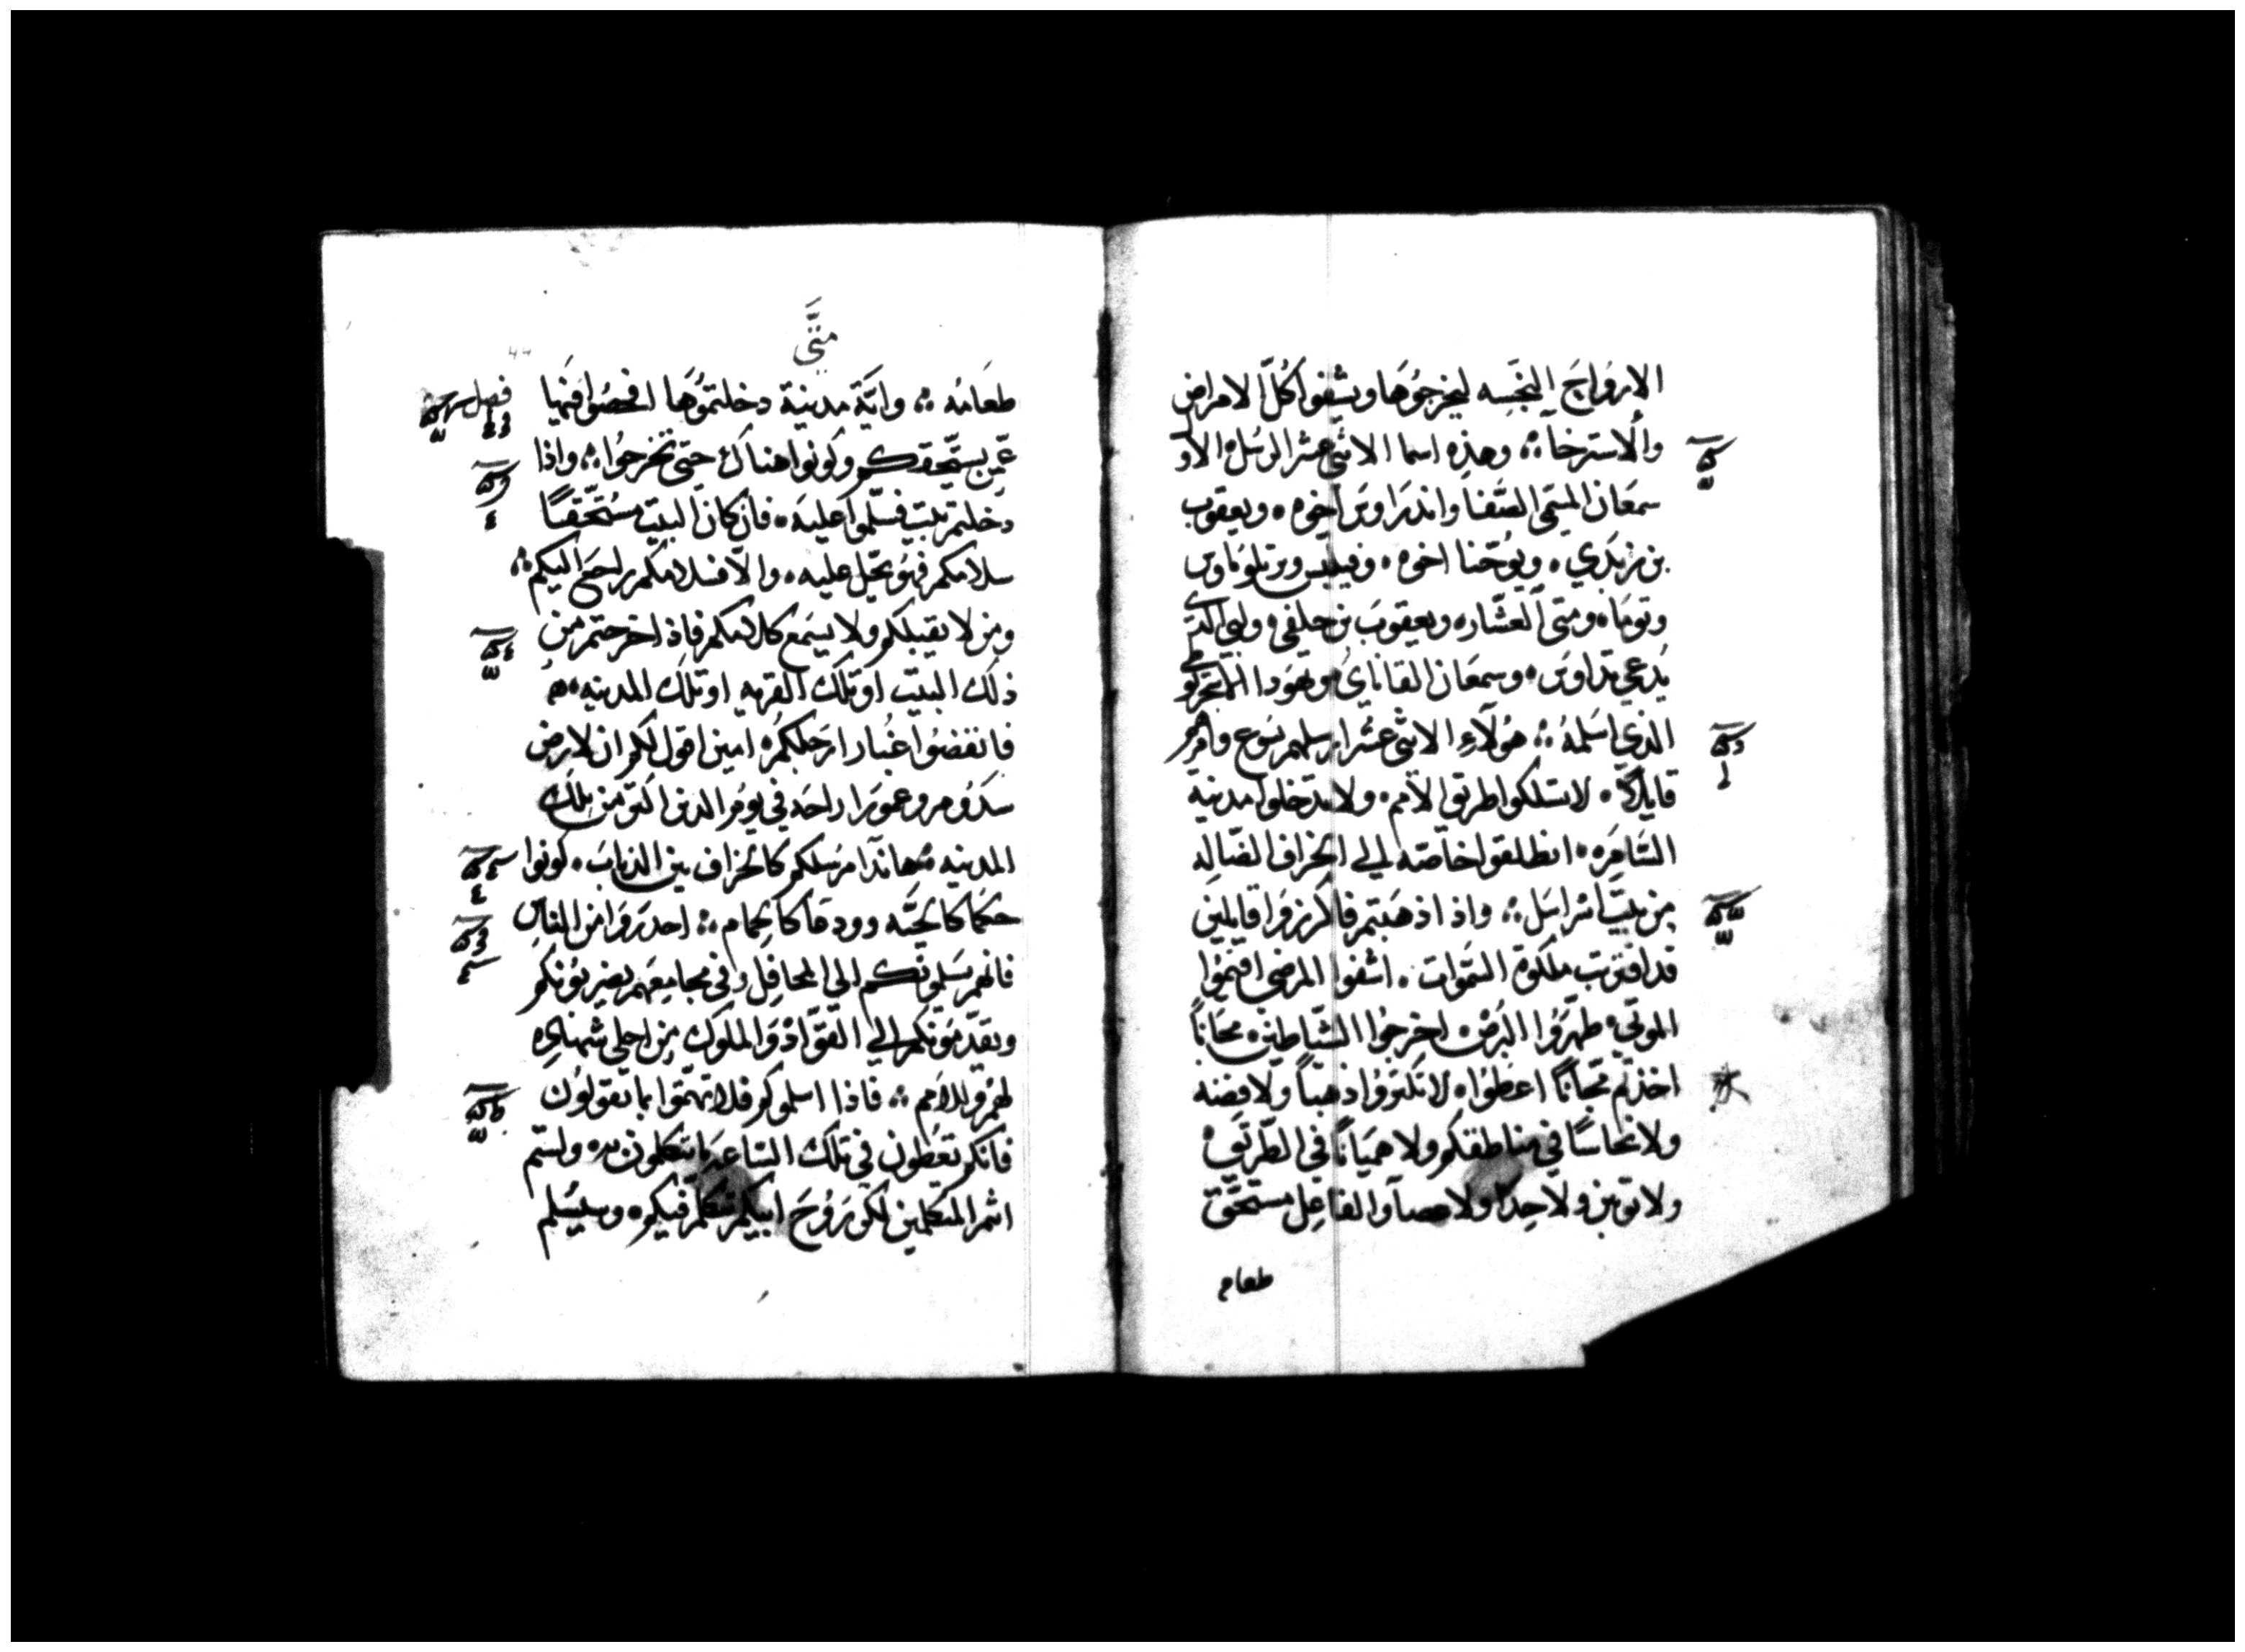 الارواح النجسه ليخرجوها ويشفوا كلّ الامراض
والاسترخآ ؞ وهذه اسما الاثنى عشر الرسل الاو
سمعان المسمى الصّفا واندراوس اخوه ؞ ويعقوب
بن زبدي ؞ ويوحنا اخوه ؞ وفيلبس وبرتلوماوس
وتوما ؞ ومتى العشّار ؞ ويعقوب بن حلفى ولبى الدى
يُدعى تداوس ؞ وسمعان القاناي ويهودا
الذي اسلمهُ ؞ هولآءِ الاثنى عشر ارسلهم يسوع وامرهم
قايلاً ؞ لا تسلكوا طريق الامم ؞ ولا تدخلوا مدينة
السّامره ؞ انطلقوا خاصّه الى الخراف الضّاله
من بيت اسرايل ؞ واذا ذهبتم فاكرزوا قايلين
قد اقتربت ملكوة السّموات ؞ اشفوا المرضى اقيموا
الموتى ؞ طهّروا البرص ؞ اخرجوا الشّياطين ؞ مجاناً
اخذتم مجاناً اعطوا ؞ لا تكنزوا ذهباً ولا فضه
ولا نحاسًا فى مناطقكم ولا هميانًا فى الطّريق
ولا ثوبين ولا حدا ولا عصآ والفاعل مستحقّ
طعام
متّى
طعامه ؞ وايّة مدينة دخلتموُها افحصُوا فيها
عمّن يستحقكم وكونوا هناك حتى تخرجوُا ؞ واذا
دخلتم بيت فسلّموا عليه ؞ فان كان البيت مستحقًّا
سلامكم فهو يحل عليه ؞ والاّ فسلامكم راجع اليكم ؞
ومن لا يقبلكم ولا يسمع كلامكم فاذا خرجتم من
ذلك البيت او تلك القريه او تلك المدينه ؞
فانفضُوا غُبار ارجلكم ؞ امين اقول لكم ان لارض
سدوم وعمورا راحه فى يوم الدين اكتر من تلك
المدينه ؞ هاندا مرسلكم كالخراف بين الدياب ؞ كونوا
حكما كالحيّه وودعا كالحمام ؞ احدروا من الناس
فانهم يسلمونكم الى المحافل وفى مجامعهم يضربونكم
ويقدّمونكم الى القوّاد والملوك من اجلى شهادة
لهُم وللامم ؞ فاذا اسلموكم فلا تهتموا بما تقولون
فانكم تعطون فى تلك السّاعه ما تتكلمون به ؞ ولستم
انتم المتكلمين لكن روُح ابيكم تتكلم فيكم ؞ وسيُسلم